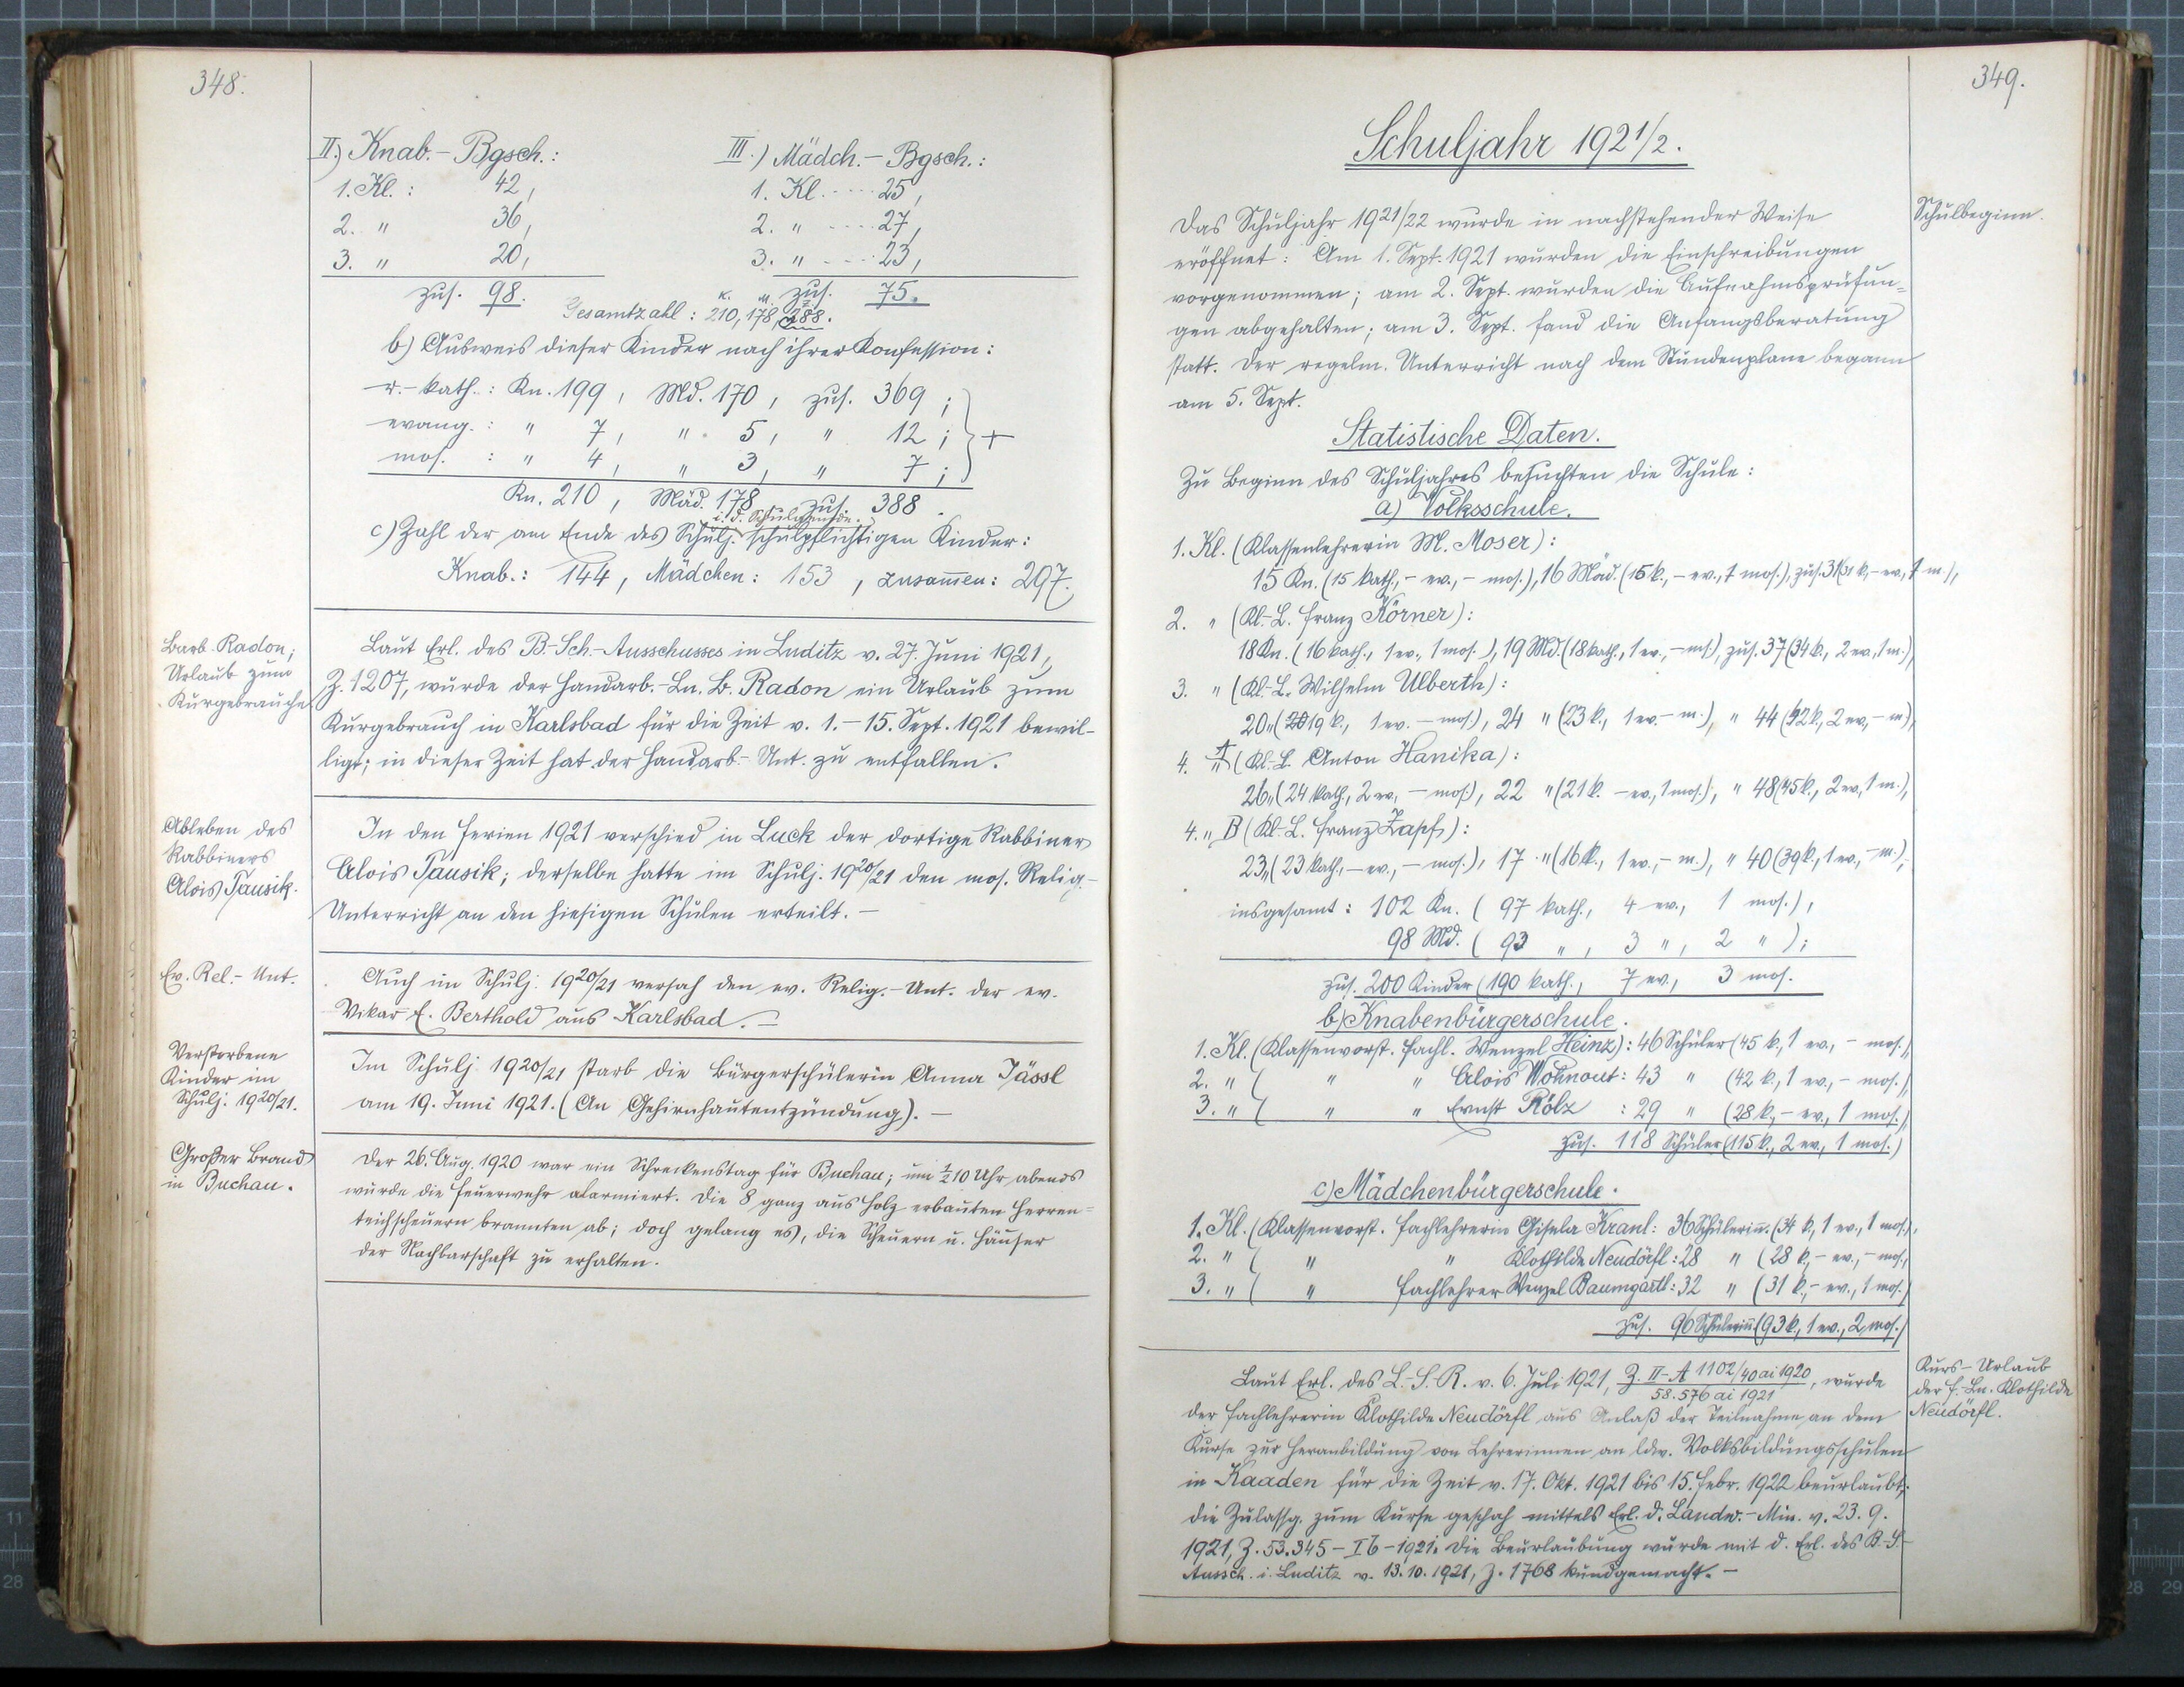 348.
II.) Knab.- Bgsch.:
1. Kl. : 42,
2. " 36,
3. " 20,
zus. 98.
III.) Mädch.- Bgsch.:
1. Kl. .... 25,
2. " .... 27,
3. " .... 23,
zus. 75.
K. M. Z.
Gesamtzahl : 210, 178, 388.
b) Ausweis dieser Kinder nach ihrer Konfession :
r.- kath. : Kn. 199, Md. 170, zus. 369 ;
evang. : " 7, " 5, " 12 ; } +
mos. : " 4, " 3, " 7 ;
Kn. 210, Mäd. 178 zus. 388.
i. d. Schulgemeinde
c) Zahl der am Ende des Schulj. schulpflichtigen Kinder :
Knab. : 144, Mädchen : 153, zusam̄en : 297.
Barb. Radon;
Urlaub zum
Kurgebrauche
Laut Erl. des B.-Sch.-Ausschusses in Luditz v. 27. Juni 1921,
Z. 1207, wurde der Handarb.-Ln. B. Radon ein Urlaub zum
Kurgebrauch in Karlsbad für die Zeit v. 1.– 15. Sept. 1921 bewil-
ligt; in dieser Zeit hat der Handarb.- Unt. zu entfallen.
Ableben des
Rabbiners
Alois Tausik.
In den Ferien 1921 verschied in Luck der dortige Rabbiner
Alois Tausik; derselbe hatte im Schulj. 1920/21 den mos. Relig.-
Unterricht an den hiesigen Schulen erteilt. –
Ev. Rel.- Unt.
Auch im Schulj. 1920/21 versah den ev. Relig.- Unt. der ev.
Vikar E. Berthold aus Karlsbad. –
Verstorbene
Kinder im
Schulj. 1920/21.
Im Schulj. 1920/21 starb die Bürgerschülerin Anna Jässl
am 19. Juni 1921. (An Gehirnhautentzündung). –
Großer Brand
in Buchau.
Der 26. Aug. 1920 war ein Schreckenstag für Buchau; um ½ 10 Uhr abends
wurde die Feuerwehr alarmiert. Die 8 ganz aus Holz erbauten Herren=
teichscheuern brannten ab; doch gelang es, die Scheuern u. Häuser
der Nachbarschaft zu erhalten.
349.
Schuljahr 1921/2.
Schulbeginn.
Das Schuljahr 1921/22 wurde in nachstehender Weise
eröffnet : Am 1. Sept. 1921 wurden die Einschreibungen
vorgenommen; am 2. Sept. wurden die Aufnahmsprüfun=
gen abgehalten; am 3. Sept. fand die Anfangsberatung
statt. Der regelm. Unterricht nach dem Stundenplane begann
am 5. Sept.
Statistische Daten.
Zu Beginn des Schuljahres besuchten die Schule :
a) Volksschule.
1. Kl. (Klassenlehrerin M. Moser) :
15 Kn. (15 kath., – ev., – mos.), 16 Mäd. (15 k., – ev., 1 mos.), zus. 31 (31 k., – ev., 1 m.),
2. " (Kl.-L. Franz Körner) :
18 Kn. (16 kath., 1 ev., 1 mos.), 19 Md. (18 kath., 1 ev., – ms.), zus. 37 (34 k., 2 ev., 1 m.),
3. " (Kl.-L. Wilhelm Ulberth) :
20 " (19 k., 1 ev. – mos.), 24 " (23 k., 1 ev. – m.), " 44 (42 k., 2 ev., – m.),
4. A (Kl.-L. Anton Hanika) :
26 " (24 kath., 2 ev., – mos.), 22 " (21 k. – ev., 1 mos.), " 48 (45 k., 2 ev., 1 m.),
4. " B (Kl.-L. Franz Zapf) :
23 " (23 kath., – ev., – mos.), 17 " (16 k., 1 ev., – m.), " 40 (39 k., 1 ev., – m.),
insgesamt : 102 Kn. (97 kath., 4 ev., 1 mos.),
98 Md. (93 ", 3 ", 2 ");
zus. 200 Kinder (190 kath., 7 ev., 3 mos.
b) Knabenbürgerschule.
1. Kl. (Klassenvorst. Fachl. Wenzel Heinz) : 46 Schüler (45 k., 1 ev., – mos.),
2. " ( " " Alois Wohnout : 43 " (42 k., 1 ev., – mos.),
3. " ( " " Ernst Rölz : 29 " (28 k., – ev., 1 mos.),
zus. 118 Schüler (115 k., 2 ev., 1 mos.)
c) Mädchenbürgerschule.
1. Kl. (Klassenvorst. Fachlehrerin Gisela Kranl : 36 Schülerin̄. (34 k., 1 ev., 1 mos.),
2. " ( " " Klothilde Neudörfl : 28 " (28 k., – ev., – mos.,
3. " ( " Fachlehrer Wenzel Baumgartl : 32 " (31 k., – ev., 1 mos.)
zus. 96 Schülerin̄. (93 k., 1 ev., 2 mos.)
Kurs- Urlaub
der F.-Ln. Klothilde
Neudörfl.
Laut Erl. des L.-S.-R. v. 6. Juli 1921, Z. II-A 1102/40 ai 1920, wurde
58.576 ai 1921
der Fachlehrerin Klothilde Neudörfl aus Anlaß der Teilnahme an dem
Kurse zur Heranbildung von Lehrerinnen an ldw. Volksbildungsschulen
in Kaaden für die Zeit v. 17. Okt. 1921 bis 15. Febr. 1922 beurlaubt;
die Zulassg. zum Kurse geschah mittels Erl. d. Landw.- Min. v. 23. 9.
1921, Z. 53.345 – I b – 1921. Die Beurlaubung wurde mit d. Erl. des B.-S.-
Aussch. i. Luditz v. 13. 10. 1921, Z. 1768 kundgemacht. –